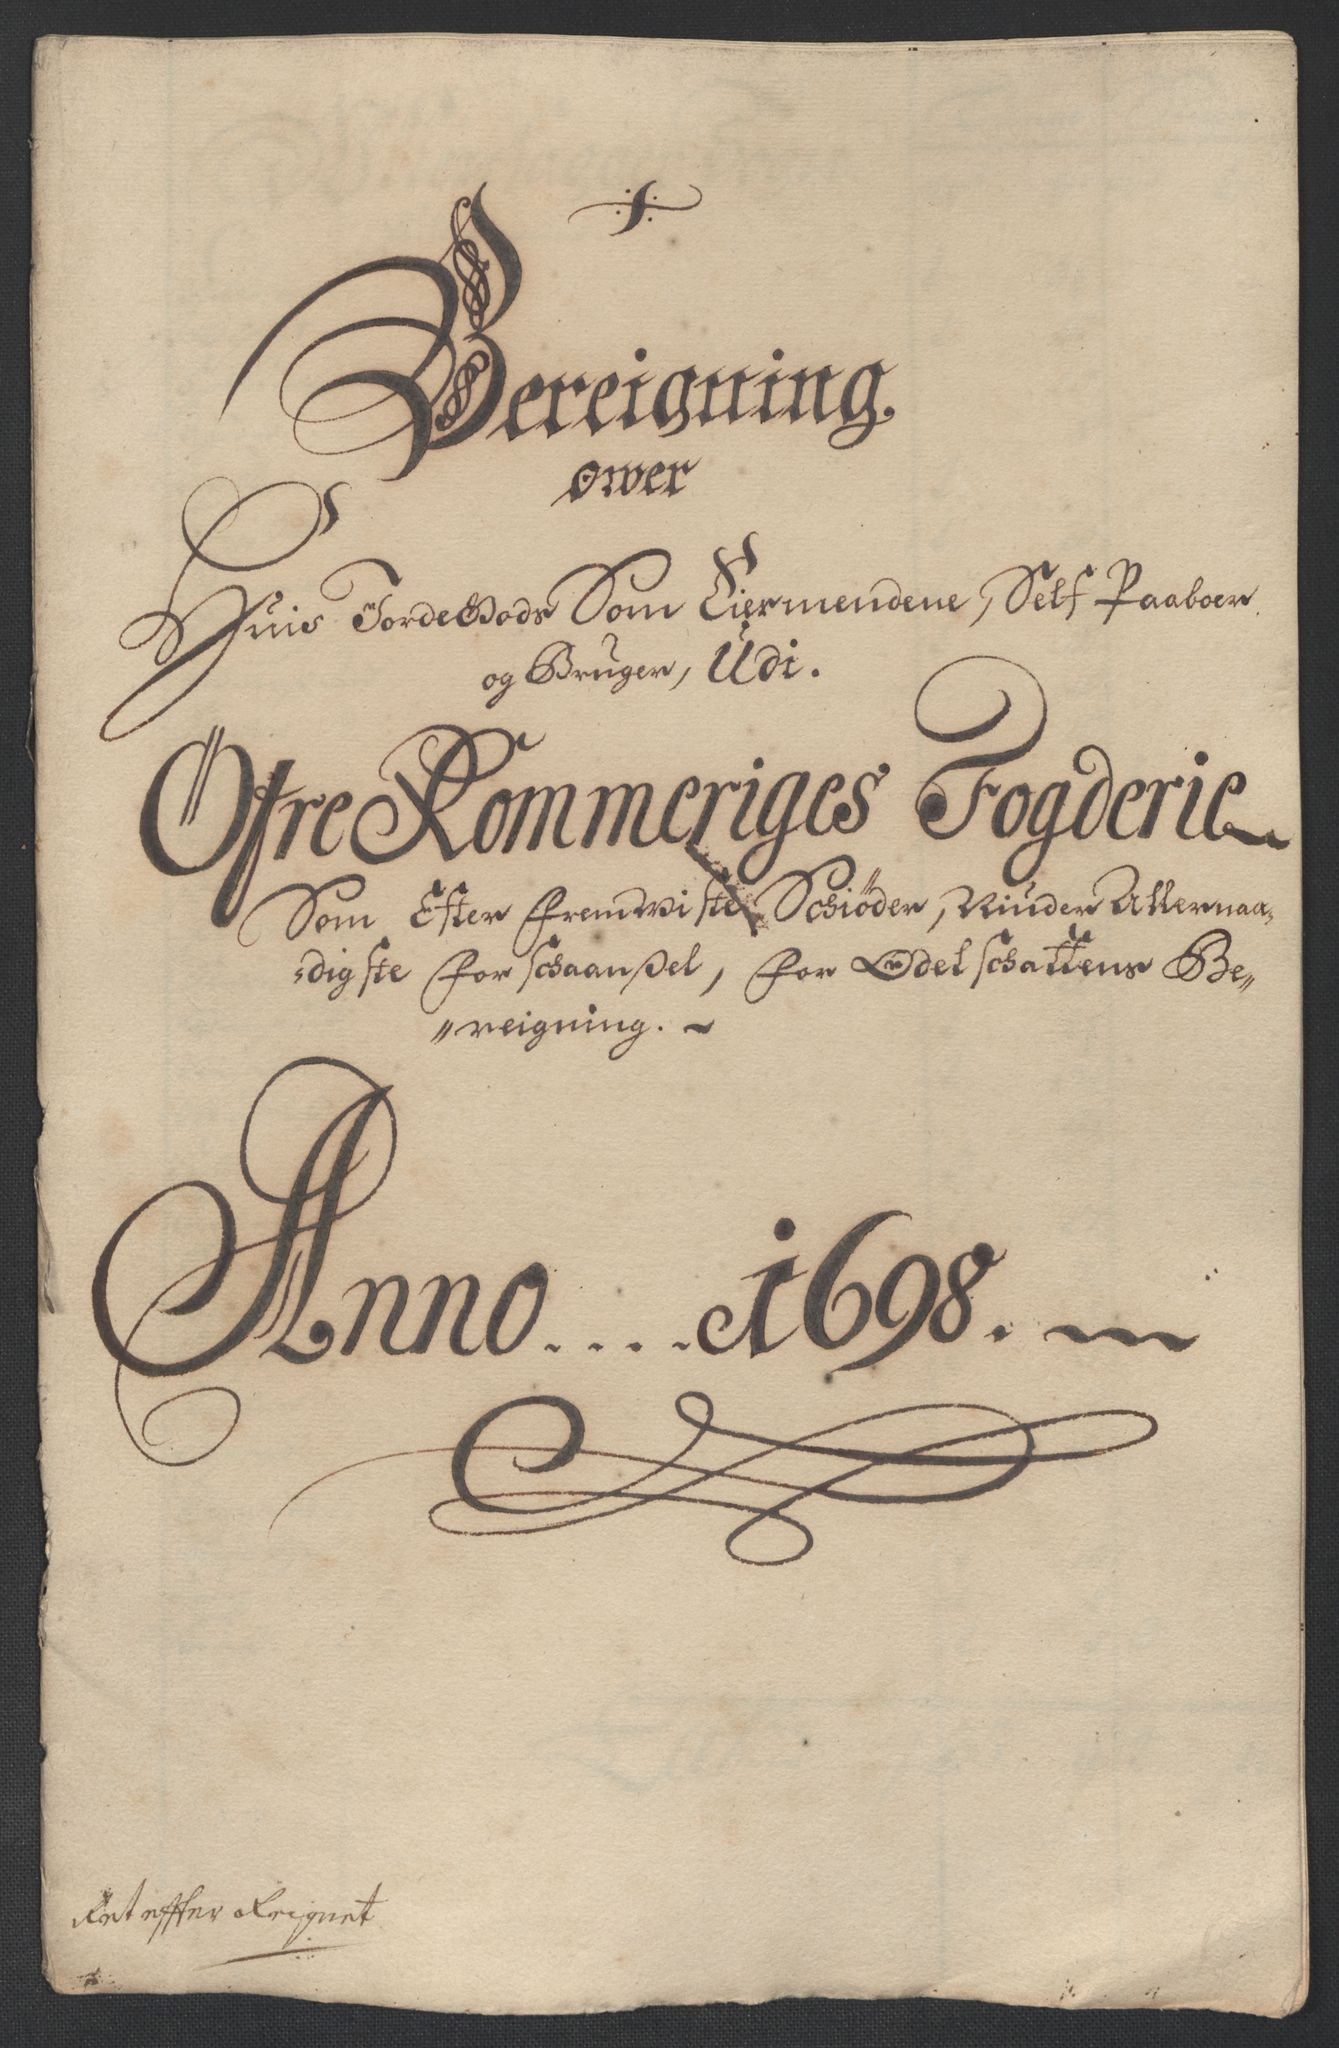 Bereigning.
ower
Huis JordeGods Som Eiermendene, Self Paaboer
og Bruger, Udi.
Öfre Rommeriges Fogderie
Som Efter fremviste Schiöder, Niuder Allernaa-
digste forschaanßel, for Odelschattens Be-
reigning.
Anno....1698.
Ret effter Reignet